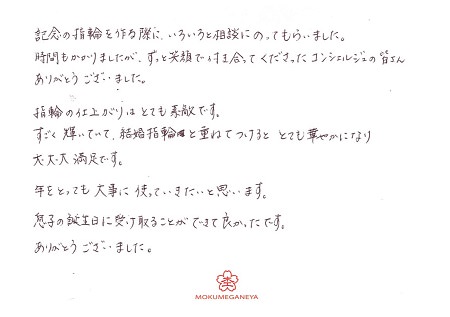 記念の指輪を作る際に、いろいろと相談にのってもらいました。
時間もかかりましたが、ずっと笑顔で付き合ってくださったコンシェルジュの皆さん
ありがとうございました。
指輪の仕上がりはとても素敵です。
すごく輝いていて、結婚指輪と重ねてつけると とても華やかになり
大・大・大 満足です。
年をとっても大事に使っていきたいと思います。
息子の誕生日に受け取ることができて良かったです。
ありがとうございました。
MOKUMEGANEYA